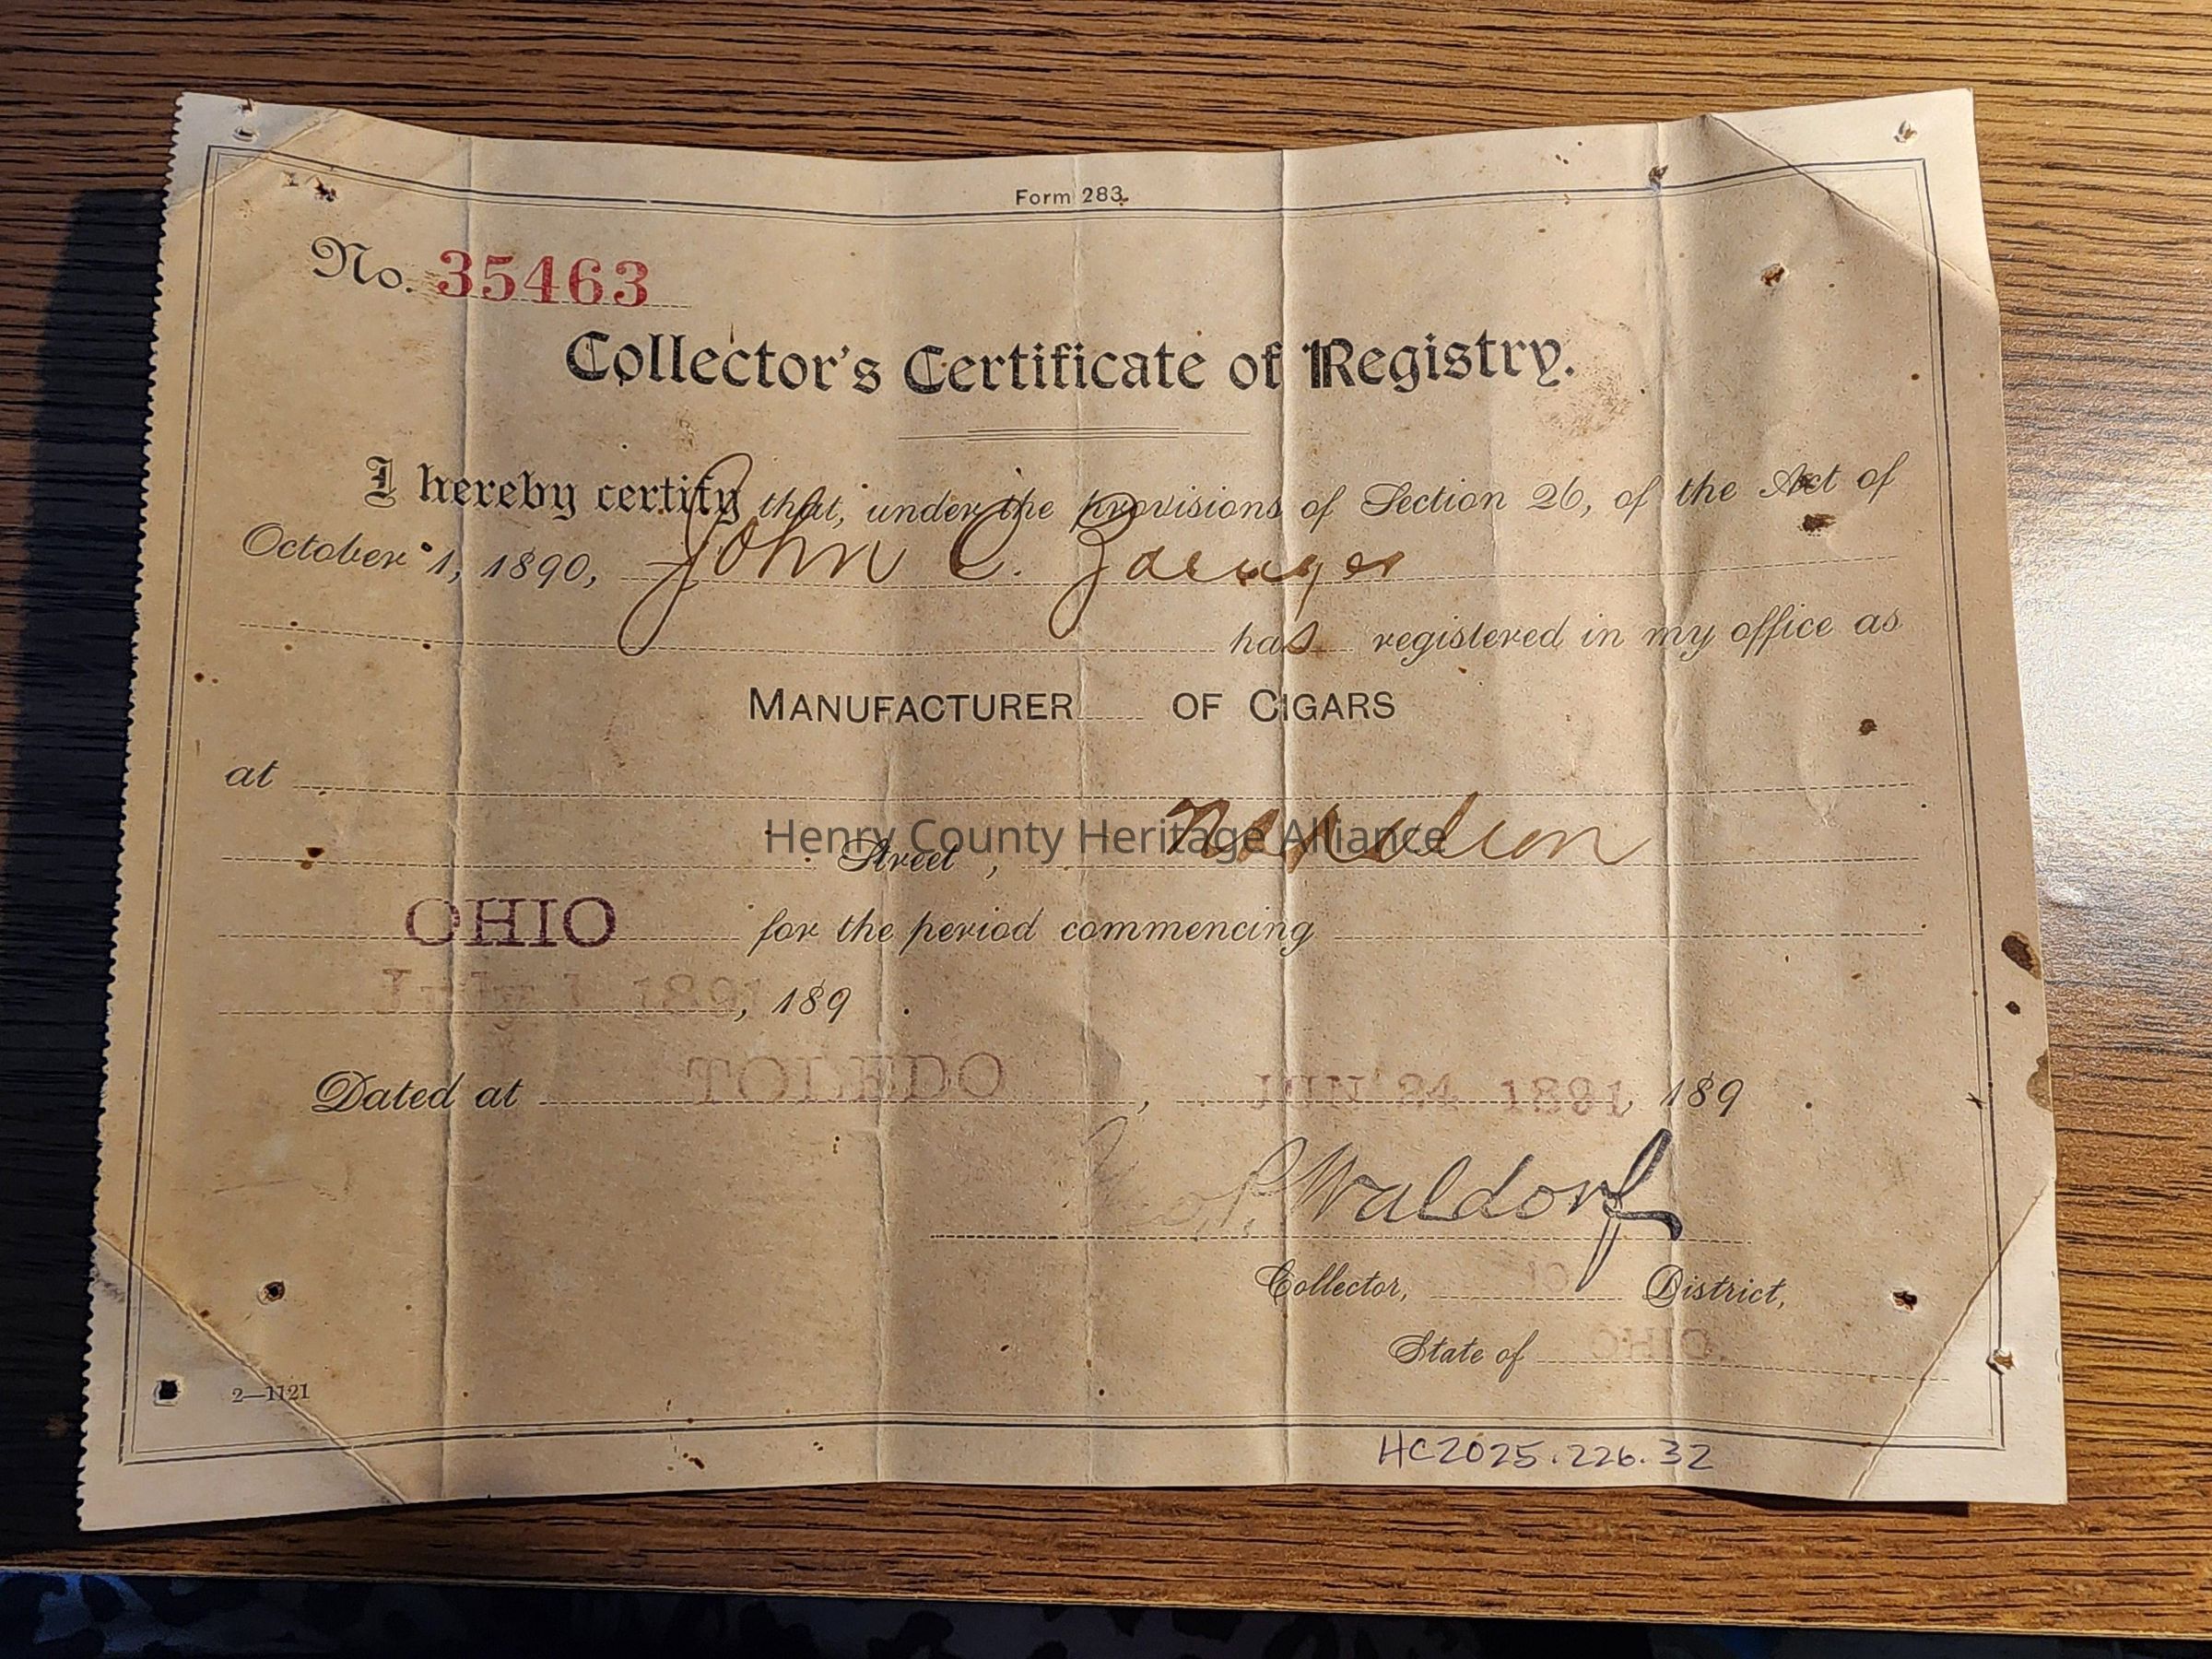 Form 283.
No. 35463
Collector's Certificate of Registry.
I hereby certify that, under the provisions of Section 26, of the Act of
October 1, 1890, John C.
has registered in my office as
MANUFACTURER OF CIGARS
at
Street, Napoleon
Henry County Heritage Alliance
OHIO for the period commencing
July 1 1891, 189 .
Dated at TOLEDO, JUN 24 1891, 189 .
Geo. P. Waldorf
Collector, 10 District,
State of OHIO.
2—1121
HC2025.226.32